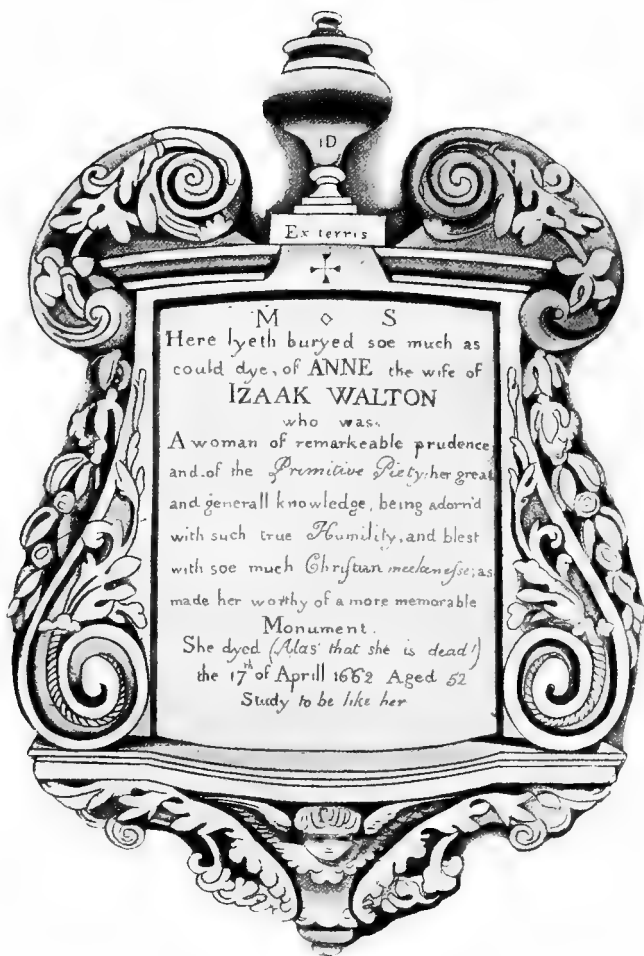 1D
Ex terris
M ◇ S
Here lyeth buryed soe much as
could dye, of ANNE the wife of
IZAAK WALTON
who was.
A woman of remarkeable prudence
and of the Primitive Piety: her great
and generall knowledge, being adorn'd
with such true Humility, and blest
with soe much Christian meekenesse; as
made her worthy of a more memorable
Monument.
She dyed (Alas' that she is dead!)
the 17th of Aprill 1662 Aged 52
Study to be like her